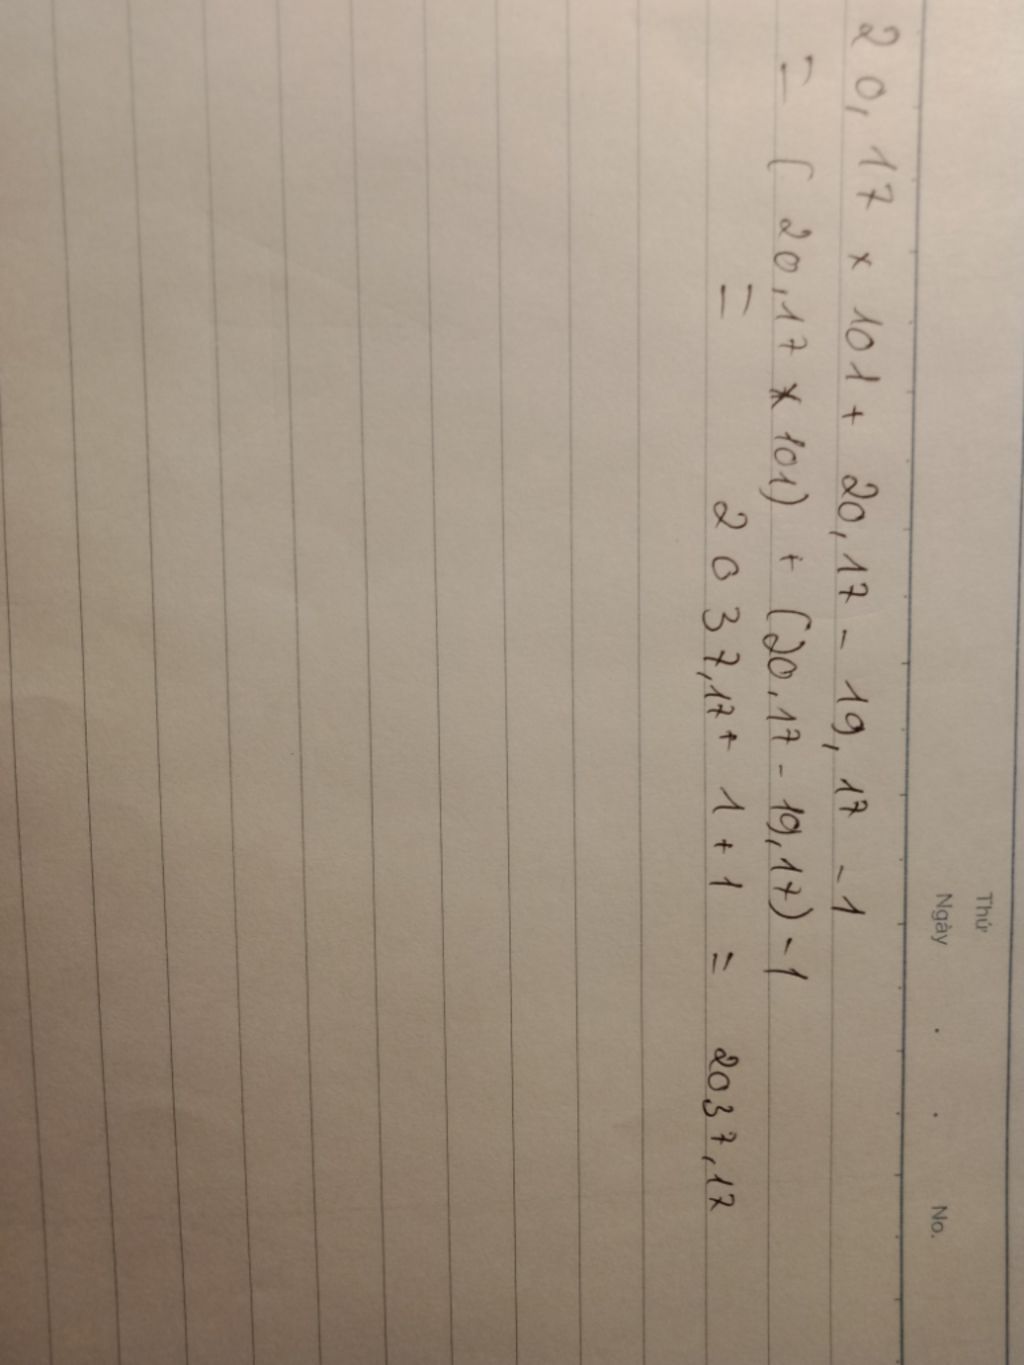 Thứ
Ngày . . No.
20,17 x 101 + 20,17 - 19,17 - 1
= ( 20,17 x 101) + (20,17 - 19,17) - 1
= 2037,17 + 1 + 1 = 2037,17